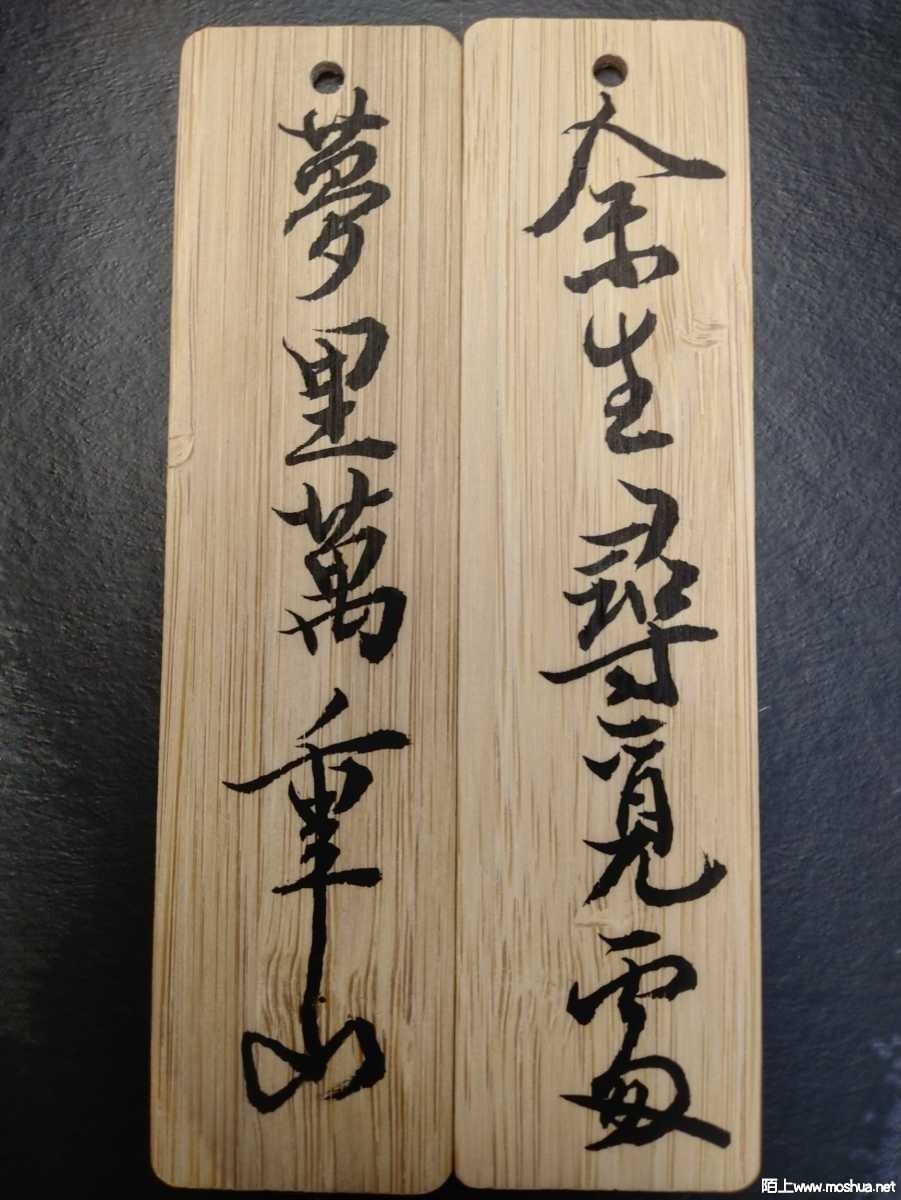 余生尋覓處
夢里萬重山
陌上www.moshua.net